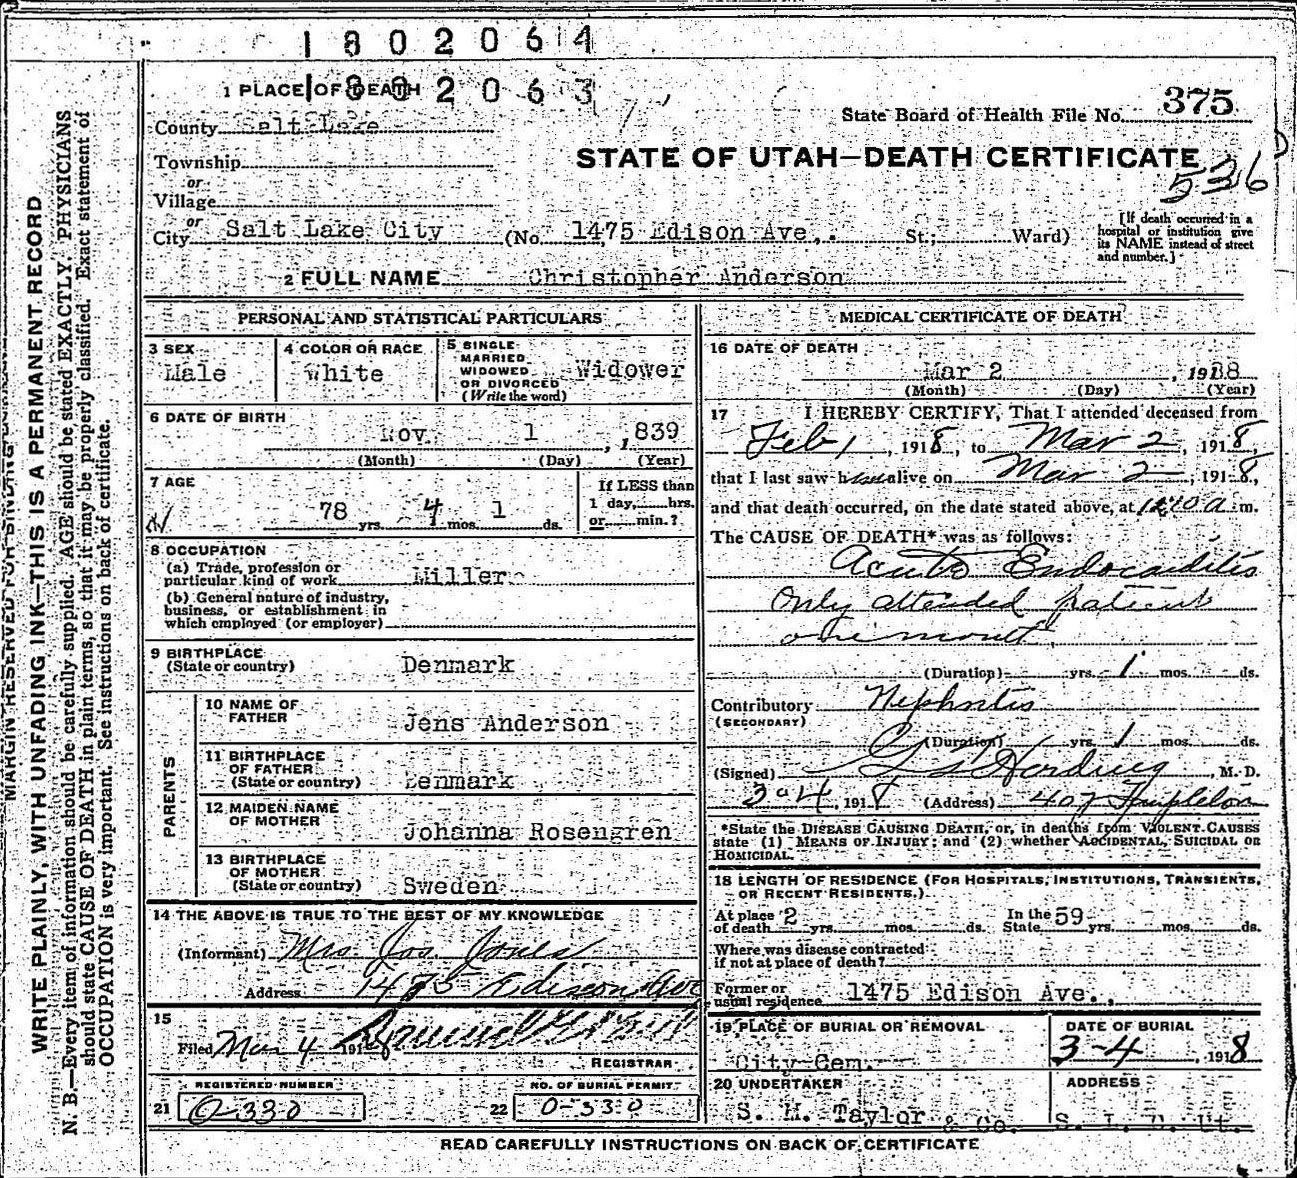 1802064
1802063
1 PLACE OF DEATH
State Board of Health File No. 375
County Salt Lake
STATE OF UTAH—DEATH CERTIFICATE
536
Township
or
Village
or
City Salt Lake City (No. 1475 Edison Ave., St.; Ward)
[If death occurred in a
hospital or institution give
its NAME instead of street
and number.]
2 FULL NAME Christopher Anderson
PERSONAL AND STATISTICAL PARTICULARS
3 SEX
Male
4 COLOR OR RACE
White
5 SINGLE
MARRIED
WIDOWED
OR DIVORCED
(Write the word)
Widower
6 DATE OF BIRTH
Nov 1, 1839
(Month) (Day) (Year)
7 AGE
78 yrs. 4 mos. 1 ds.
If LESS than
1 day, hrs.
or min.?
8 OCCUPATION
(a) Trade, profession or
particular kind of work Miller
(b) General nature of industry,
business, or establishment in
which employed (or employer)
9 BIRTHPLACE
(State or country) Denmark
PARENTS
10 NAME OF
FATHER Jens Anderson
11 BIRTHPLACE
OF FATHER
(State or country) Denmark
12 MAIDEN NAME
OF MOTHER Johanna Rosengren
13 BIRTHPLACE
OF MOTHER
(State or country) Sweden
14 THE ABOVE IS TRUE TO THE BEST OF MY KNOWLEDGE
(Informant) Mrs Jos. Jones
Address 1475 Edison Ave
15
Filed Mar 4 1918
REGISTRAR
REGISTERED NUMBER
21 O-330
NO. OF BURIAL PERMIT
22 O-330
MEDICAL CERTIFICATE OF DEATH
16 DATE OF DEATH
Mar 2, 1918
(Month) (Day) (Year)
17 I HEREBY CERTIFY, That I attended deceased from
Feb 1, 1918, to Mar 2, 1918,
that I last saw h alive on Mar 2, 1918,
and that death occurred, on the date stated above, at a.m.
The CAUSE OF DEATH* was as follows:
Acute Endocarditis
Only attended patient
one month
(Duration) yrs. 1 mos. ds.
Contributory Nephritis
(SECONDARY)
(Duration) yrs. 1 mos. ds.
(Signed) Harding, M. D.
3-4, 1918 (Address) 407 Templeton
*State the DISEASE CAUSING DEATH, or, in deaths from VIOLENT CAUSES
state (1) MEANS OF INJURY; and (2) whether ACCIDENTAL, SUICIDAL OR
HOMICIDAL.
18 LENGTH OF RESIDENCE (FOR HOSPITALS, INSTITUTIONS, TRANSIENTS,
OR RECENT RESIDENTS.)
At place
of death 2 yrs. mos. ds. In the
State 59 yrs. mos. ds.
Where was disease contracted
if not at place of death?
Former or
usual residence 1475 Edison Ave.
19 PLACE OF BURIAL OR REMOVAL
City Cem.
DATE OF BURIAL
3-4, 1918
20 UNDERTAKER
S. M. Taylor & Co.
ADDRESS
S. L. C. Ut.
READ CAREFULLY INSTRUCTIONS ON BACK OF CERTIFICATE
WRITE PLAINLY, WITH UNFADING INK—THIS IS A PERMANENT RECORD
N. B.—Every item of information should be carefully supplied. AGE should be stated EXACTLY. PHYSICIANS
should state CAUSE OF DEATH in plain terms, so that it may be properly classified. Exact statement of
OCCUPATION is very important. See instructions on back of certificate.